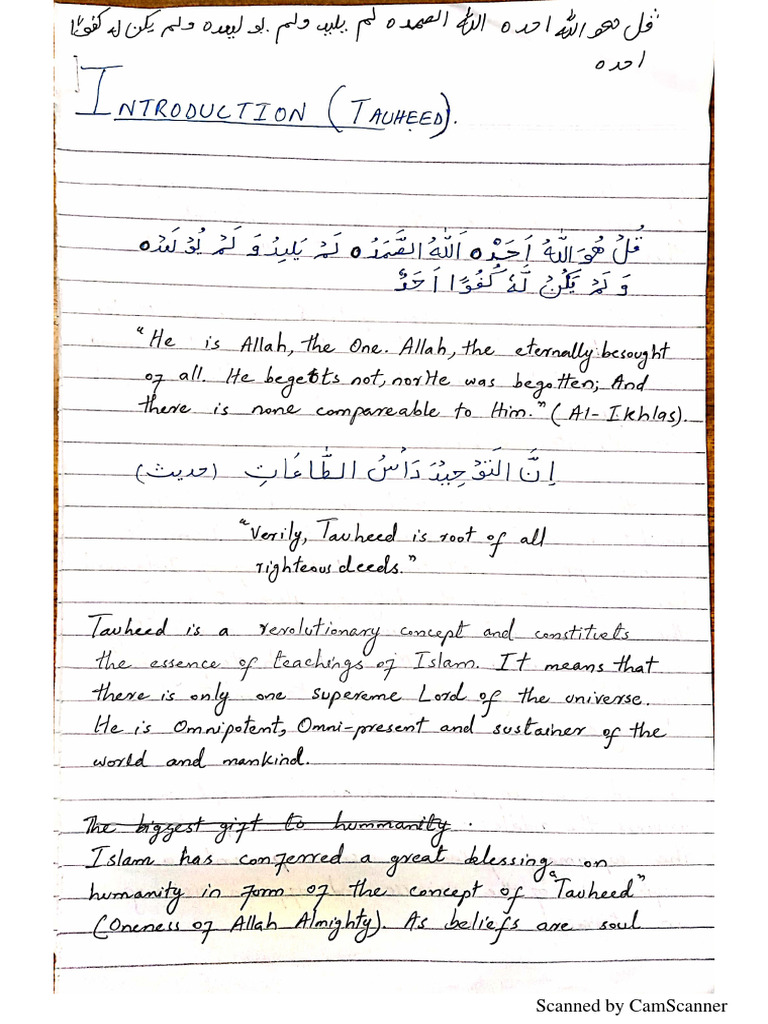 قل ھو اللہ احدہ اللہ الصمدہ لم یلید ولم یو لیدہ ولم یکن لہ کفوًا
احدہ
INTRODUCTION (TAUHEED).
قُلْ هُوَ اللّٰهُ اَحَدْه اَللّٰهُ الصَّمَدُه لَمْ يَلِيدْ وَ لَمْ يُوْلَدْه
وَ لَمْ يَكُنْ لَّهٗ كُفُوًا اَحَدٌ
"He is Allah, the One. Allah, the eternally besought
of all. He begets not, nor He was begotten; And
there is none compareable to Him." (Al-Ikhlas).
اِنَّ التَوْحِيْدَ رَاْسُ الطَّاعَاتِ (حدیث)
"Verily, Tauheed is root of all
righteous deeds."
Tauheed is a revolutionary concept and constituets
the essence of teachings of Islam. It means that
there is only one supereme Lord of the universe.
He is Omnipotent, Omni-present and sustainer of the
world and mankind.
The biggest gift to hummanity.
Islam has conferred a great blessing on
humanity in form of the concept of "Tauheed"
(Oneness of Allah Almighty). As beliefs are soul
Scanned by CamScanner